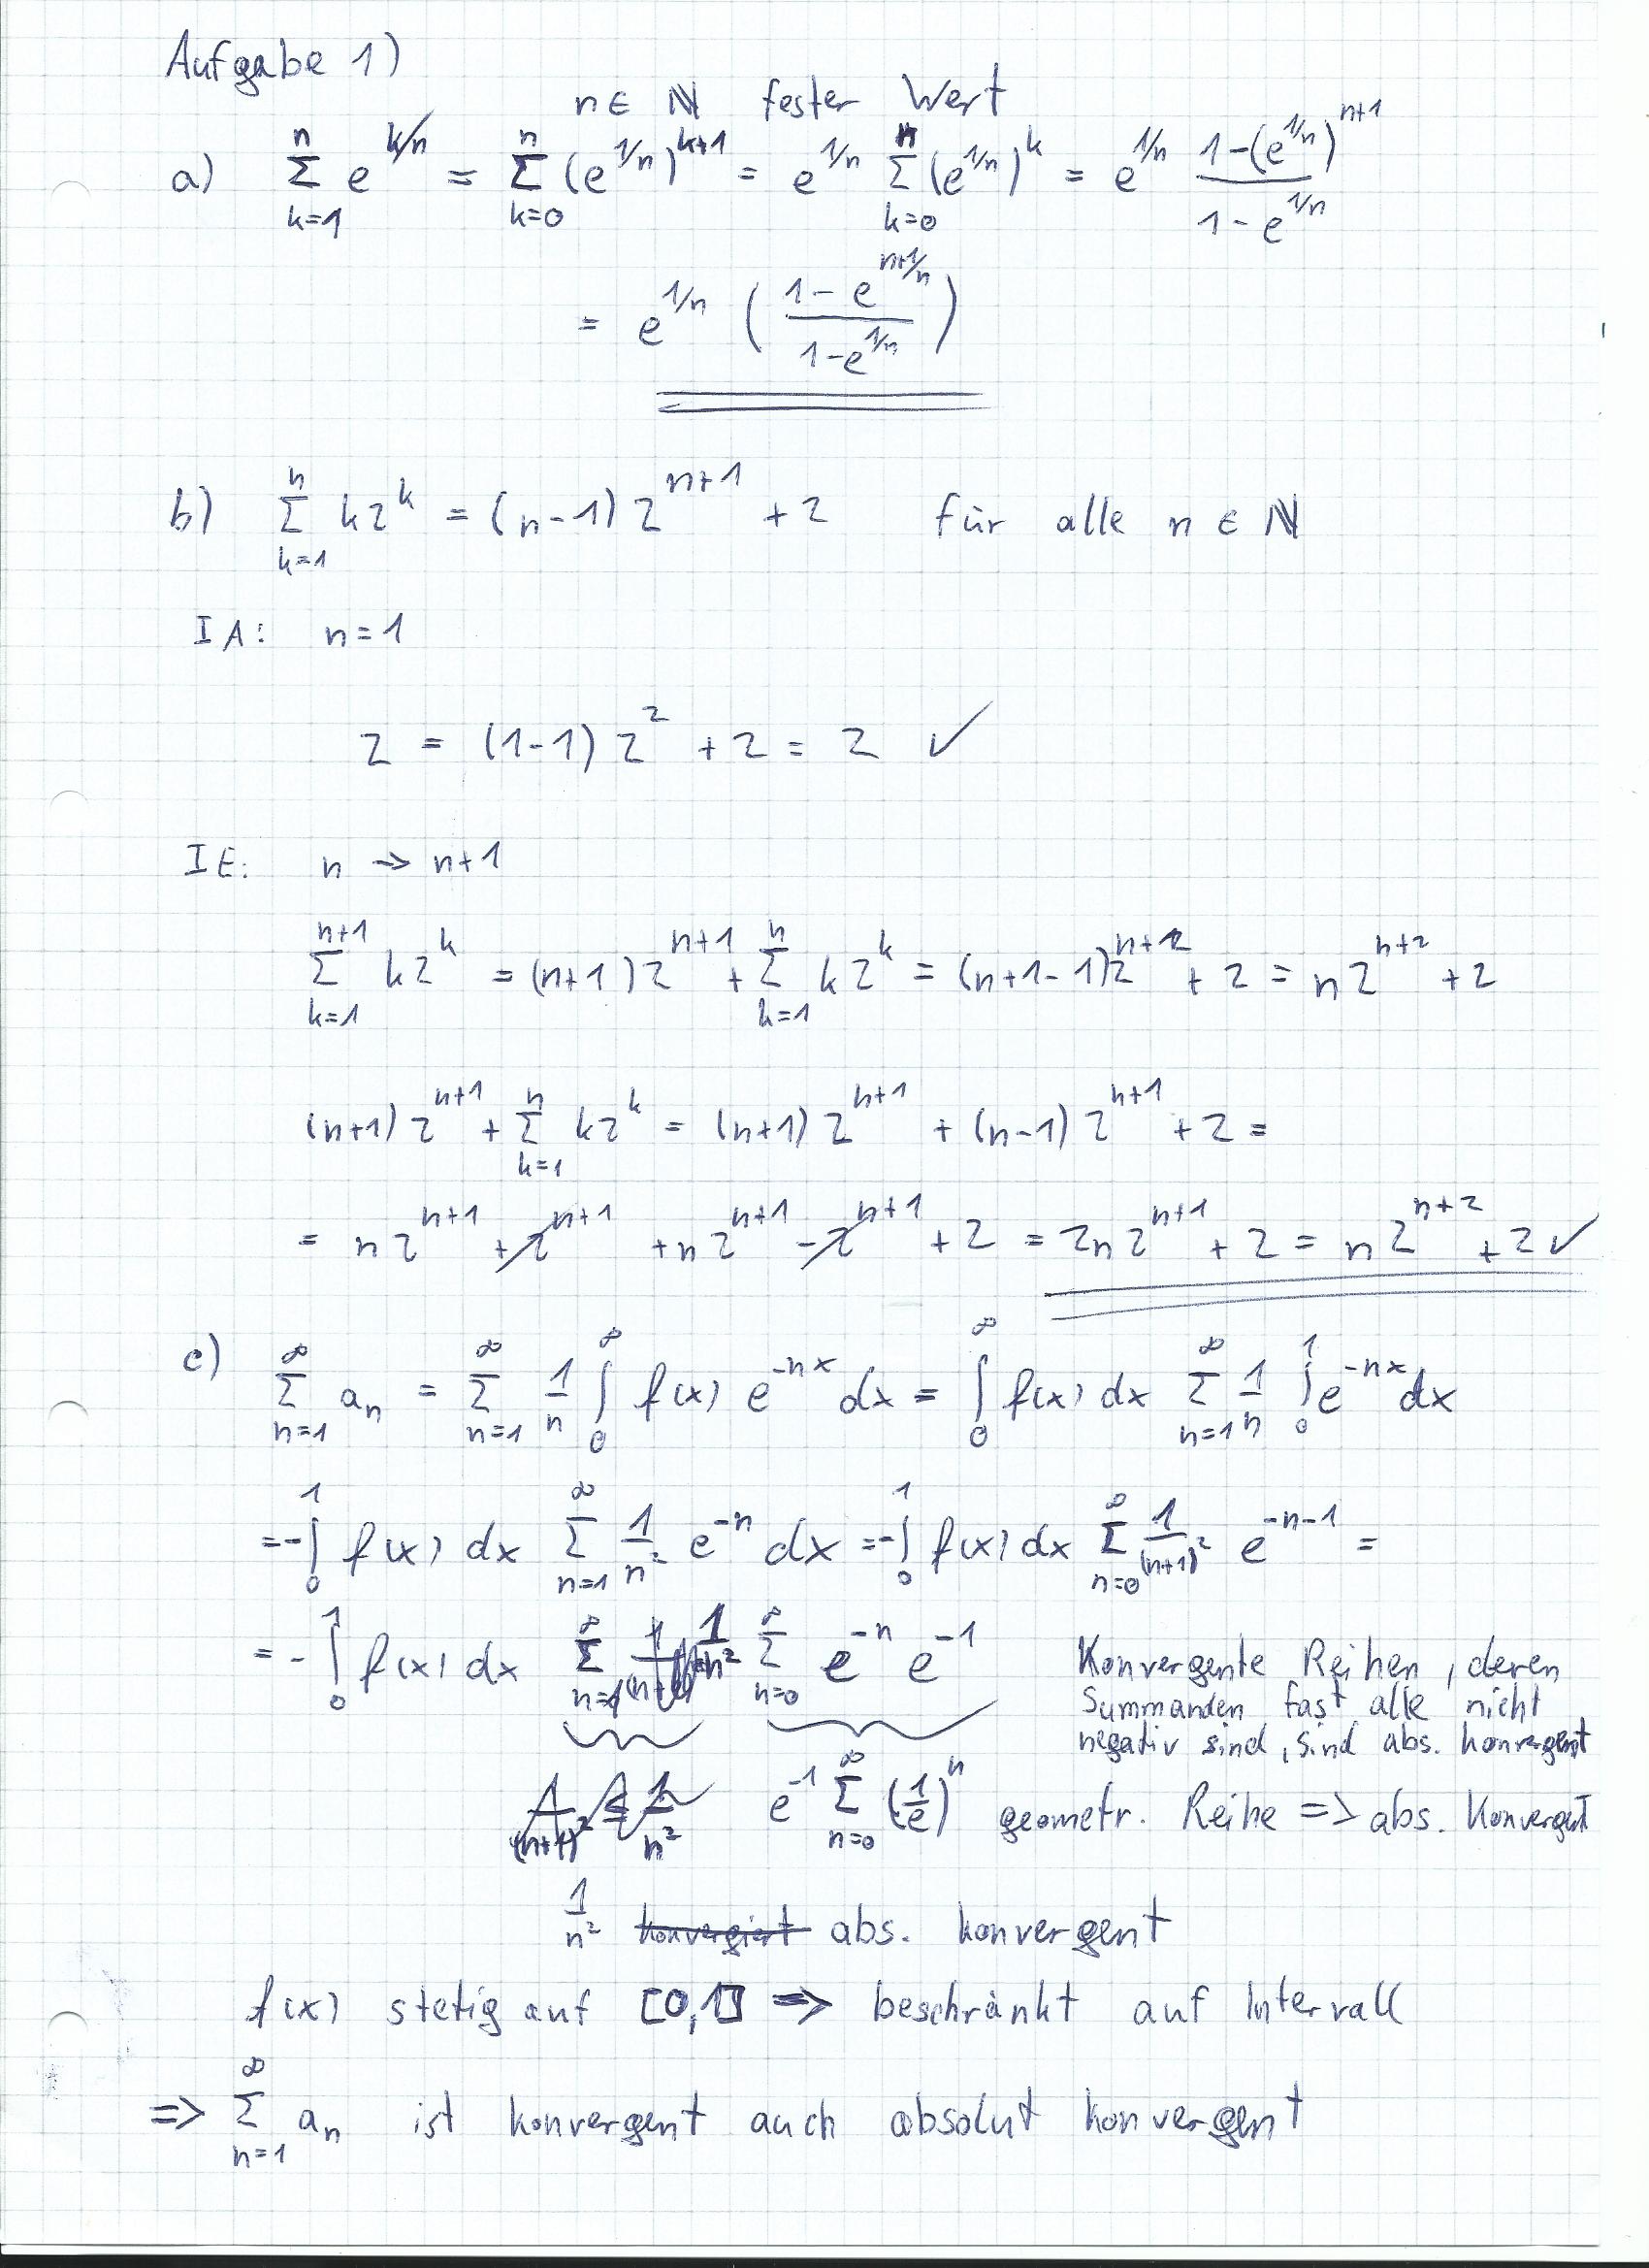 Aufgabe 1)
n ∈ ℕ fester Wert
a) \sum_{k=1}^{n} e^{k/n} = \sum_{k=0}^{n} (e^{1/n})^{k+1} = e^{1/n} \sum_{k=0}^{n} (e^{1/n})^k = e^{1/n} \frac{1-(e^{1/n})^{n+1}}{1-e^{1/n}}
= e^{1/n} ( \frac{1-e^{n+1/n}}{1-e^{1/n}} )
b) \sum_{k=1}^{n} k2^k = (n-1) 2^{n+1} + 2 für alle n ∈ ℕ
IA: n=1
2 = (1-1) 2^2 + 2 = 2 ✓
IE: n → n+1
\sum_{k=1}^{n+1} k2^k = (n+1) 2^{n+1} + \sum_{k=1}^{n} k2^k = (n+1-1) 2^{n+2} + 2 = n 2^{n+2} + 2
(n+1) 2^{n+1} + \sum_{k=1}^{n} k2^k = (n+1) 2^{n+1} + (n-1) 2^{n+1} + 2 =
= n 2^{n+1} + 2^{n+1} + n 2^{n+1} - 2^{n+1} + 2 = 2n 2^{n+1} + 2 = n 2^{n+2} + 2 ✓
c) \sum_{n=1}^{∞} a_n = \sum_{n=1}^{∞} \frac{1}{n} \int_0^∞ f(x) e^{-nx} dx = \int_0^∞ f(x) dx \sum_{n=1}^{∞} \frac{1}{n} \int_0^1 e^{-nx} dx
= -\int_0^1 f(x) dx \sum_{n=1}^{∞} \frac{1}{n^2} e^{-n} dx = -\int_0^1 f(x) dx \sum_{n=0}^{∞} \frac{1}{(n+1)^2} e^{-n-1} =
= -\int_0^1 f(x) dx \sum_{n=1}^{∞} \frac{1}{n^2} \sum_{n=0}^{∞} e^{-n} e^{-1}
Konvergente Reihen, deren
Summanden fast alle nicht
negativ sind, sind abs. konvergent
e^{-1} \sum_{n=0}^{∞} (\frac{1}{e})^n geometr. Reihe => abs. Konvergent
\frac{1}{n^2} abs. konvergent
f(x) stetig auf [0,1] => beschränkt auf Intervall
=> \sum_{n=1}^{∞} a_n ist konvergent auch absolut konvergent